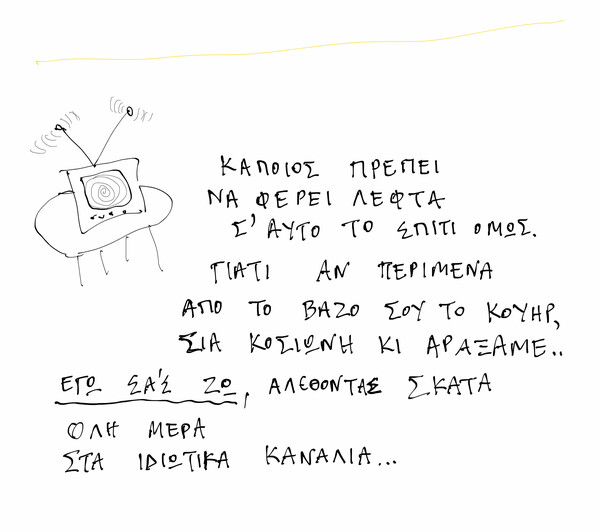 ΚΑΠΟΙΟΣ ΠΡΕΠΕΙ
ΝΑ ΦΕΡΕΙ ΛΕΦΤΑ
Σ' ΑΥΤΟ ΤΟ ΣΠΙΤΙ ΟΜΩΣ.
ΓΙΑΤΙ ΑΝ ΠΕΡΙΜΕΝΑ
ΑΠΟ ΤΟ ΒΑΖΟ ΣΟΥ ΤΟ ΚΟΥΗΡ,
ΣΙΑ ΚΟΣΙΩΝΗ ΚΙ ΑΡΑΞΑΜΕ..
ΕΓΩ ΣΑΣ ΖΩ, ΑΛΕΘΟΝΤΑΣ ΣΚΑΤΑ
ΟΛΗ ΜΕΡΑ
ΣΤΑ ΙΔΙΩΤΙΚΑ ΚΑΝΑΛΙΑ...